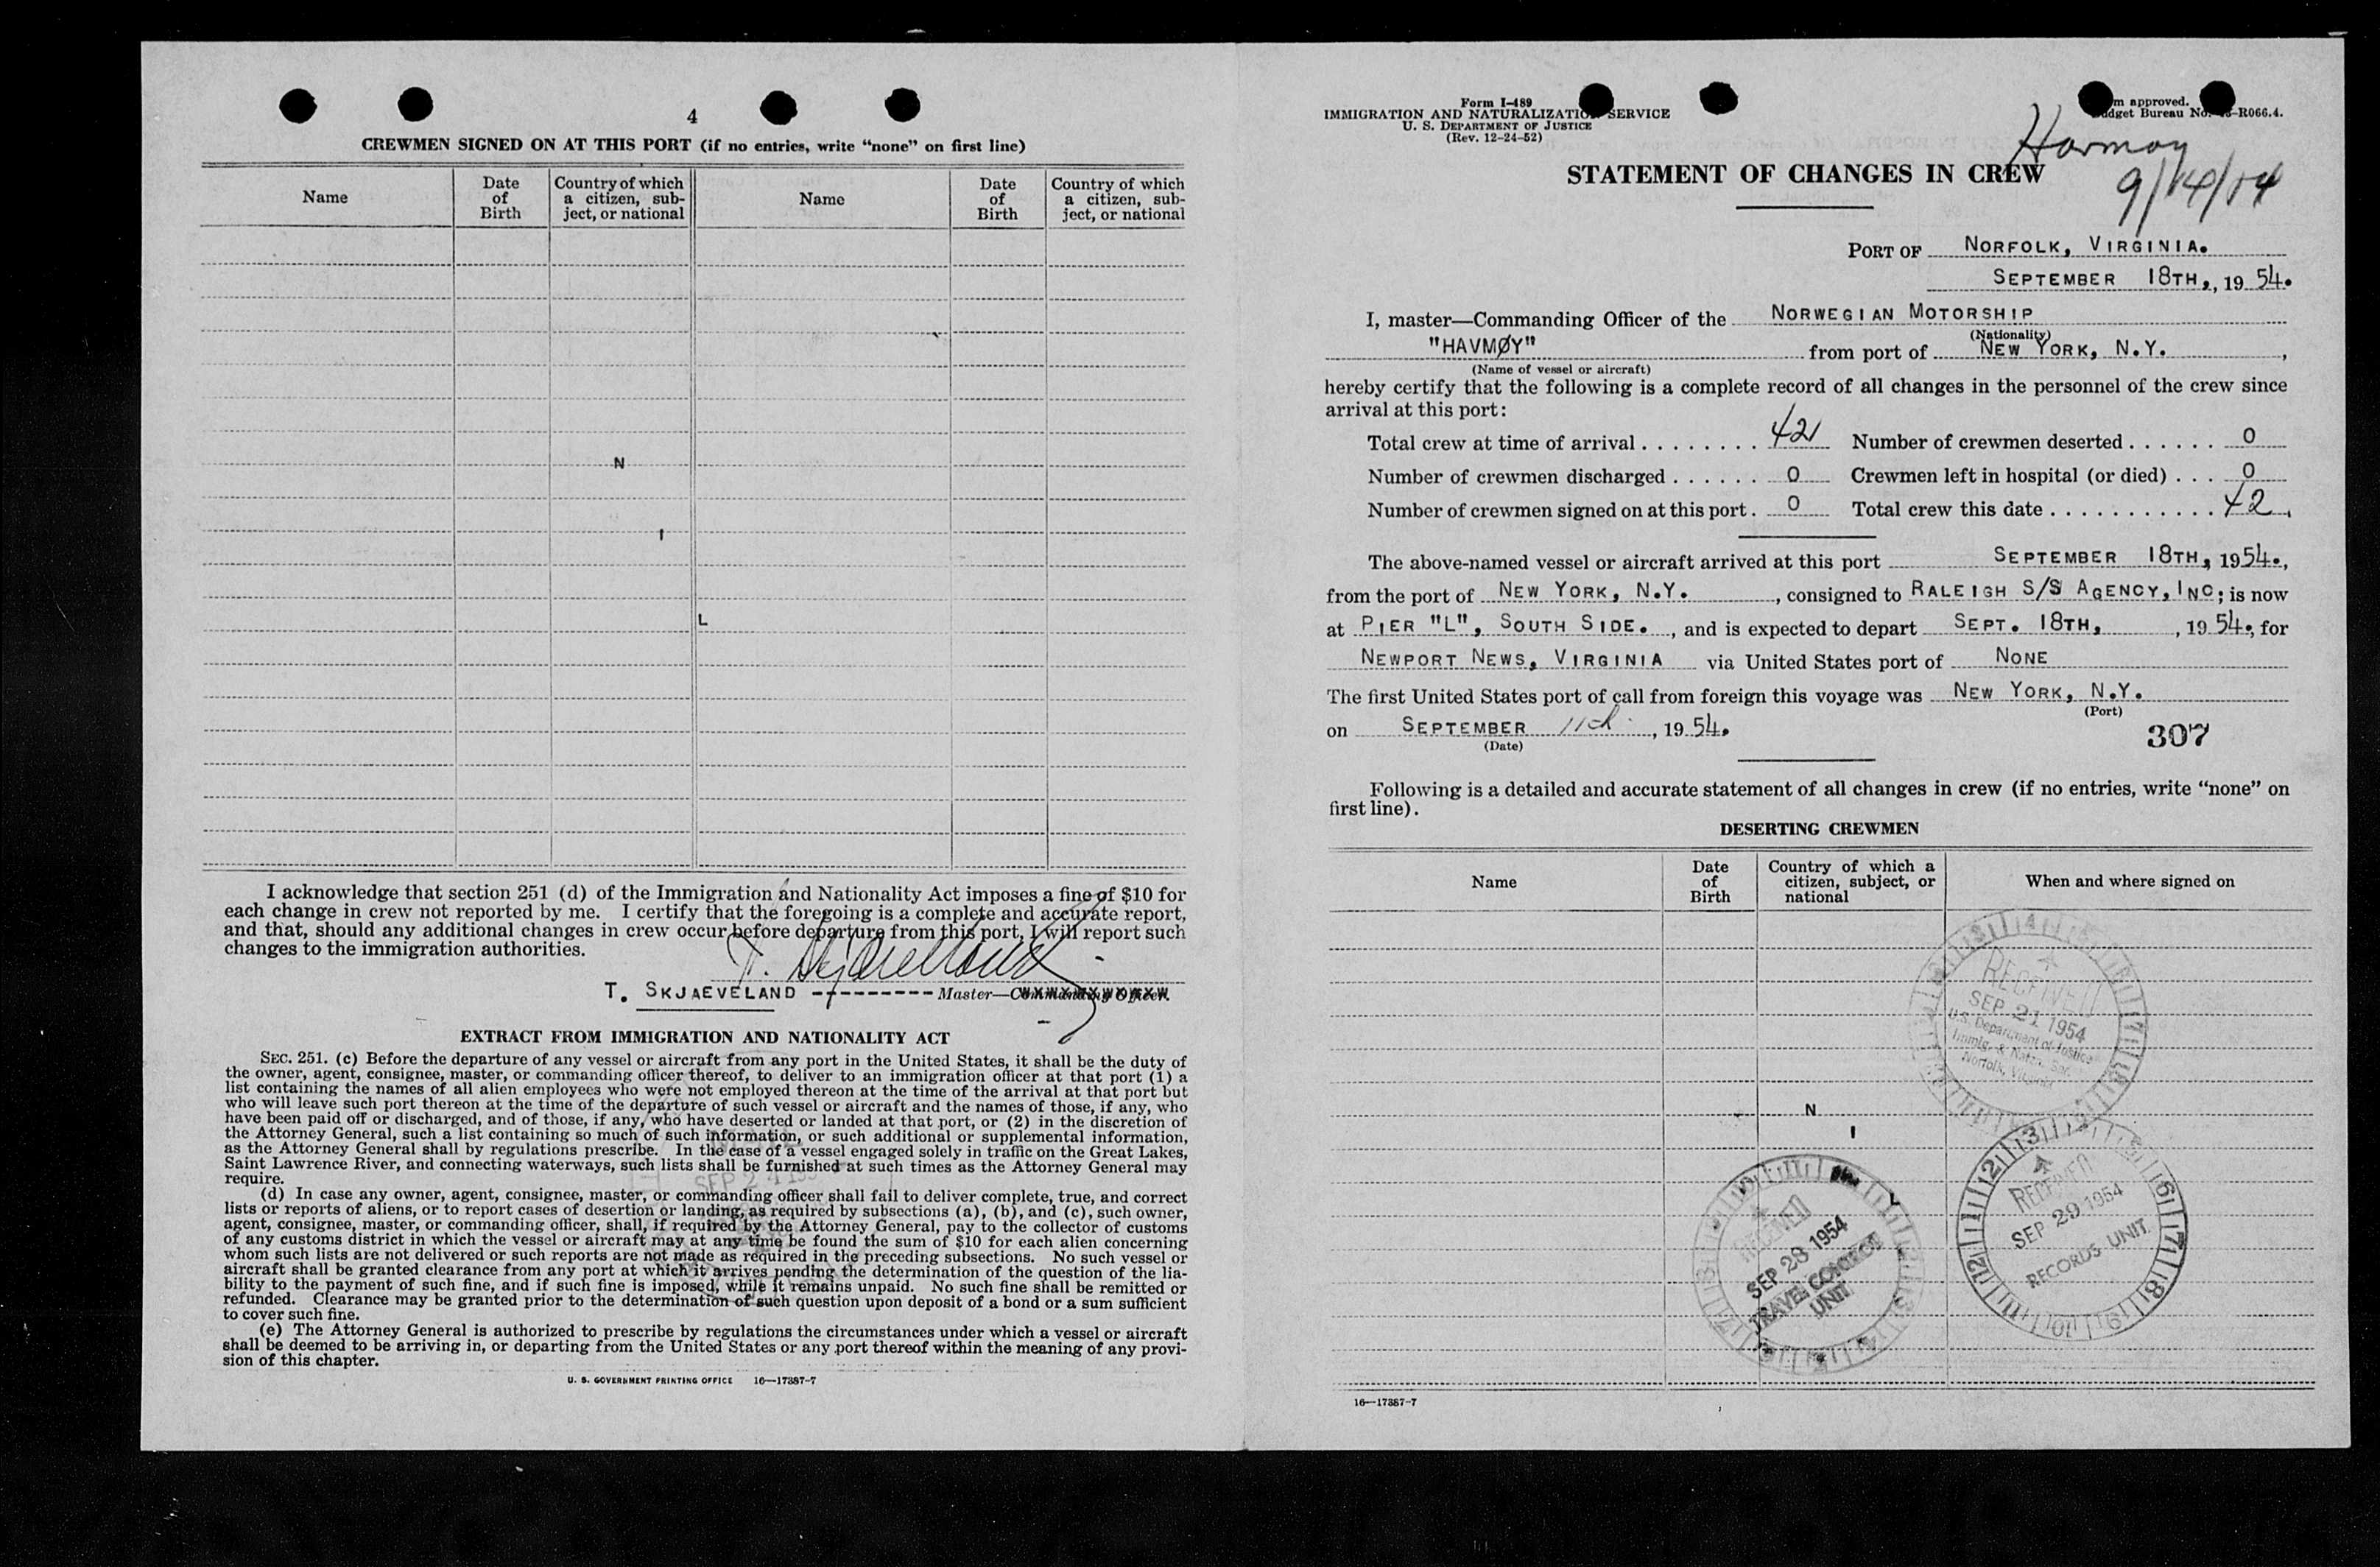 4
CREWMEN SIGNED ON AT THIS PORT (if no entries, write “none” on first line)
Name
Date of Birth
Country of which a citizen, subject, or national
Name
Date of Birth
Country of which a citizen, subject, or national
N
I
L
I acknowledge that section 251 (d) of the Immigration and Nationality Act imposes a fine of $10 for
each change in crew not reported by me. I certify that the foregoing is a complete and accurate report,
and that, should any additional changes in crew occur before departure from this port, I will report such
changes to the immigration authorities.
T. Skjaeveland
T. SKJAEVELAND ---------- Master—Commanding Officer.
EXTRACT FROM IMMIGRATION AND NATIONALITY ACT
SEC. 251. (c) Before the departure of any vessel or aircraft from any port in the United States, it shall be the duty of
the owner, agent, consignee, master, or commanding officer thereof, to deliver to an immigration officer at that port (1) a
list containing the names of all alien employees who were not employed thereon at the time of the arrival at that port but
who will leave such port thereon at the time of the departure of such vessel or aircraft and the names of those, if any, who
have been paid off or discharged, and of those, if any, who have deserted or landed at that port, or (2) in the discretion of
the Attorney General, such a list containing so much of such information, or such additional or supplemental information,
as the Attorney General shall by regulations prescribe. In the case of a vessel engaged solely in traffic on the Great Lakes,
Saint Lawrence River, and connecting waterways, such lists shall be furnished at such times as the Attorney General may
require.
(d) In case any owner, agent, consignee, master, or commanding officer shall fail to deliver complete, true, and correct
lists or reports of aliens, or to report cases of desertion or landing, as required by subsections (a), (b), and (c), such owner,
agent, consignee, master, or commanding officer, shall, if required by the Attorney General, pay to the collector of customs
of any customs district in which the vessel or aircraft may at any time be found the sum of $10 for each alien concerning
whom such lists are not delivered or such reports are not made as required in the preceding subsections. No such vessel or
aircraft shall be granted clearance from any port at which it arrives pending the determination of the question of the lia-
bility to the payment of such fine, and if such fine is imposed, while it remains unpaid. No such fine shall be remitted or
refunded. Clearance may be granted prior to the determination of such question upon deposit of a bond or a sum sufficient
to cover such fine.
(e) The Attorney General is authorized to prescribe by regulations the circumstances under which a vessel or aircraft
shall be deemed to be arriving in, or departing from the United States or any port thereof within the meaning of any provi-
sion of this chapter.
U. S. GOVERNMENT PRINTING OFFICE 16—17387-7
Form I-489
IMMIGRATION AND NATURALIZATION SERVICE
U. S. DEPARTMENT OF JUSTICE
(Rev. 12-24-52)
m approved.
dget Bureau No. -R066.4.
Havmoy
9/14/54
STATEMENT OF CHANGES IN CREW
PORT OF NORFOLK, VIRGINIA.
SEPTEMBER 18TH., 19 54.
I, master—Commanding Officer of the NORWEGIAN MOTORSHIP
(Nationality)
"HAVMØY" from port of NEW YORK, N.Y. ,
(Name of vessel or aircraft)
hereby certify that the following is a complete record of all changes in the personnel of the crew since
arrival at this port:
Total crew at time of arrival . . . . . . . . 42 Number of crewmen deserted . . . . . . 0
Number of crewmen discharged . . . . . . 0 Crewmen left in hospital (or died) . . . 0
Number of crewmen signed on at this port . 0 Total crew this date . . . . . . . . . . . 42.
The above-named vessel or aircraft arrived at this port SEPTEMBER 18TH, 1954.,
from the port of NEW YORK, N.Y. , consigned to RALEIGH S/S AGENCY, INC; is now
at PIER "L", SOUTH SIDE. , and is expected to depart SEPT. 18TH, , 19 54., for
NEWPORT NEWS, VIRGINIA via United States port of NONE
The first United States port of call from foreign this voyage was NEW YORK, N.Y.
(Port)
on SEPTEMBER 11th , 19 54.
(Date)
307
Following is a detailed and accurate statement of all changes in crew (if no entries, write “none” on
first line).
DESERTING CREWMEN
Name
Date of Birth
Country of which a citizen, subject, or national
When and where signed on
RECEIVED
SEP 21 1954
U.S. Department of Justice
Immig. & Natz. Ser.
Norfolk, Virginia
N
I
L
RECEIVED
SEP 28 1954
TRAVEL CONTROL
UNIT
RECEIVED
SEP 29 1954
RECORDS UNIT
16—17387-7